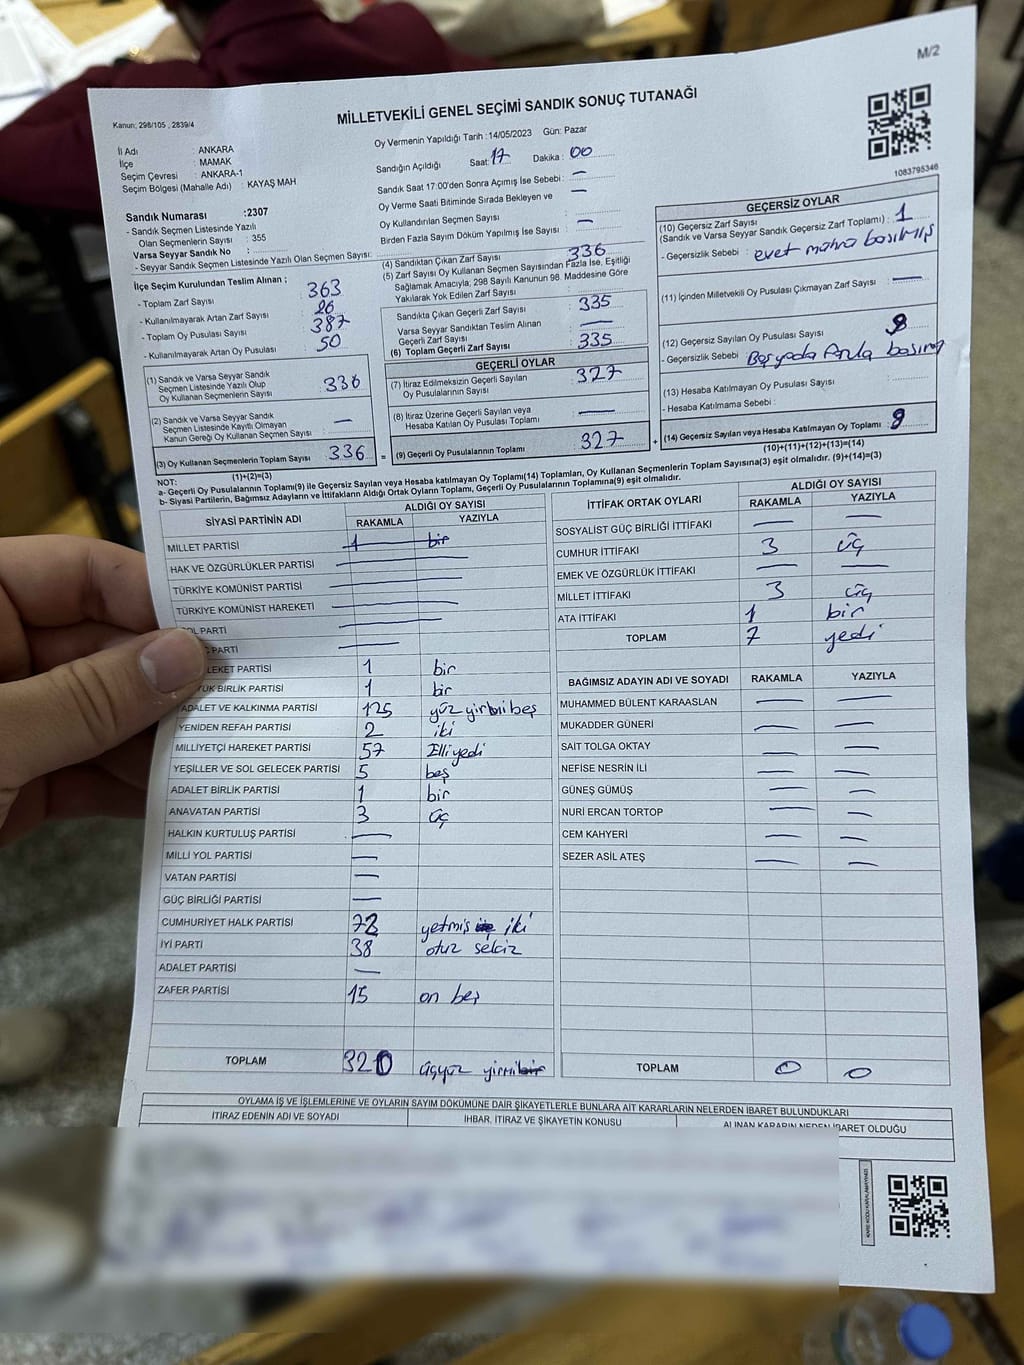 M/2
MİLLETVEKİLİ GENEL SEÇİMİ SANDIK SONUÇ TUTANAĞI
Kanun: 298/105 , 2839/4
İl Adı : ANKARA
İlçe : MAMAK
Seçim Çevresi : ANKARA-1
Seçim Bölgesi (Mahalle Adı) : KAYAŞ MAH
Oy Vermenin Yapıldığı Tarih :14/05/2023 Gün: Pazar
Sandığın Açıldığı Saat: 17 Dakika : 00
Sandık Saat 17:00'den Sonra Açılmış İse Sebebi : —
Oy Verme Saati Bitiminde Sırada Bekleyen ve
Oy Kullandırılan Seçmen Sayısı : —
Birden Fazla Sayım Döküm Yapılmış İse Sayısı : —
1083795346
Sandık Numarası :2307
- Sandık Seçmen Listesinde Yazılı
Olan Seçmenlerin Sayısı : 355
Varsa Seyyar Sandık No :
- Seyyar Sandık Seçmen Listesinde Yazılı Olan Seçmen Sayısı:
İlçe Seçim Kurulundan Teslim Alınan :
- Toplam Zarf Sayısı 363
- Kullanılmayarak Artan Zarf Sayısı 26
- Toplam Oy Pusulası Sayısı 387
- Kullanılmayarak Artan Oy Pusulası 50
(1) Sandık ve Varsa Seyyar Sandık
Seçmen Listesinde Yazılı Olup
Oy Kullanan Seçmenlerin Sayısı 336
(2) Sandık ve Varsa Seyyar Sandık
Seçmen Listesinde Kayıtlı Olmayan
Kanun Gereği Oy Kullanan Seçmen Sayısı : —
(3) Oy Kullanan Seçmenlerin Toplam Sayısı 336 =
(1)+(2)=(3)
(4) Sandıktan Çıkan Zarf Sayısı 336
(5) Zarf Sayısı Oy Kullanan Seçmen Sayısından Fazla İse, Eşitliği
Sağlamak Amacıyla, 298 Sayılı Kanunun 98. Maddesine Göre
Yakılarak Yok Edilen Zarf Sayısı :
Sandıkta Çıkan Geçerli Zarf Sayısı 335
Varsa Seyyar Sandıktan Teslim Alınan
Geçerli Zarf Sayısı : —
(6) Toplam Geçerli Zarf Sayısı 335
GEÇERLİ OYLAR
(7) İtiraz Edilmeksizin Geçerli Sayılan
Oy Pusulalarının Sayısı : 327
(8) İtiraz Üzerine Geçerli Sayılan veya
Hesaba Katılan Oy Pusulası Toplamı : —
(9) Geçerli Oy Pusulalarının Toplamı 327 +
GEÇERSİZ OYLAR
(10) Geçersiz Zarf Sayısı
(Sandık ve Varsa Seyyar Sandık Geçersiz Zarf Toplamı) : 1
- Geçersizlik Sebebi : evet mührü basılmış
(11) İçinden Milletvekili Oy Pusulası Çıkmayan Zarf Sayısı : —
(12) Geçersiz Sayılan Oy Pusulası Sayısı
- Geçersizlik Sebebi :
(13) Hesaba Katılmayan Oy Pusulası Sayısı :
- Hesaba Katılmama Sebebi :
(14) Geçersiz Sayılan veya Hesaba Katılmayan Oy Toplamı :
(10)+(11)+(12)+(13)=(14)
NOT:
a- Geçerli Oy Pusulalarının Toplamı(9) ile Geçersiz Sayılan veya Hesaba katılmayan Oy Toplamı(14) Toplamları, Oy Kullanan Seçmenlerin Toplam Sayısına(3) eşit olmalıdır. (9)+(14)=(3)
b- Siyasi Partilerin, Bağımsız Adayların ve İttifakların Aldığı Ortak Oyların Toplamı, Geçerli Oy Pusulalarının Toplamına(9) eşit olmalıdır.
SİYASİ PARTİNİN ADI ALDIĞI OY SAYISI
RAKAMLA YAZIYLA
MİLLET PARTİSİ 1 bir
HAK VE ÖZGÜRLÜKLER PARTİSİ —
TÜRKİYE KOMÜNİST PARTİSİ —
TÜRKİYE KOMÜNİST HAREKETİ —
OL PARTİ —
PARTİ —
LEKET PARTİSİ 1 bir
ÜK BİRLİK PARTİSİ 1 bir
ADALET VE KALKINMA PARTİSİ 125 yüz yirmi beş
YENİDEN REFAH PARTİSİ 2 iki
MİLLİYETÇİ HAREKET PARTİSİ 57 Elli yedi
YEŞİLLER VE SOL GELECEK PARTİSİ 5 beş
ADALET BİRLİK PARTİSİ 1 bir
ANAVATAN PARTİSİ 3 üç
HALKIN KURTULUŞ PARTİSİ —
MİLLİ YOL PARTİSİ —
VATAN PARTİSİ —
GÜÇ BİRLİĞİ PARTİSİ —
CUMHURİYET HALK PARTİSİ 72 yetmiş üç iki
İYİ PARTİ 38 otuz sekiz
ADALET PARTİSİ —
ZAFER PARTİSİ 15 on beş
TOPLAM 320 üçyüz yirmi bir
İTTİFAK ORTAK OYLARI ALDIĞI OY SAYISI
RAKAMLA YAZIYLA
SOSYALİST GÜÇ BİRLİĞİ İTTİFAKI — —
CUMHUR İTTİFAKI 3 üç
EMEK VE ÖZGÜRLÜK İTTİFAKI — —
MİLLET İTTİFAKI 3 üç
ATA İTTİFAKI 1 bir
TOPLAM 7 yedi
BAĞIMSIZ ADAYIN ADI VE SOYADI RAKAMLA YAZIYLA
MUHAMMED BÜLENT KARAASLAN — —
MUKADDER GÜNERİ — —
SAİT TOLGA OKTAY — —
NEFİSE NESRİN İLİ — —
GÜNEŞ GÜMÜŞ — —
NURİ ERCAN TORTOP — —
CEM KAHYERİ — —
SEZER ASİL ATEŞ — —
TOPLAM 0 0
OYLAMA İŞ VE İŞLEMLERİNE VE OYLARIN SAYIM DÖKÜMÜNE DAİR ŞİKAYETLERLE BUNLARA AİT KARARLARIN NELERDEN İBARET BULUNDUKLARI
İTİRAZ EDENİN ADI VE SOYADI İHBAR, İTİRAZ VE ŞİKAYETİN KONUSU ALINAN KARARIN NEDEN İBARET OLDUĞU